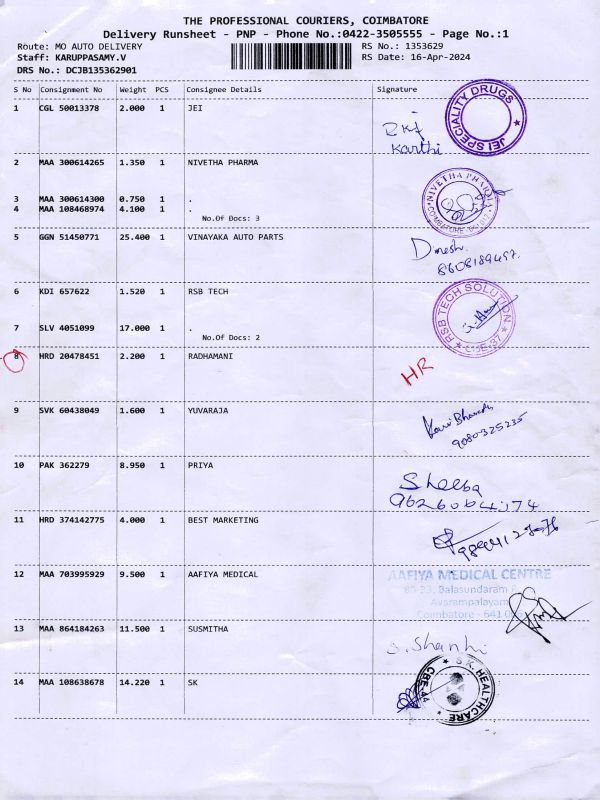 THE PROFESSIONAL COURIERS, COIMBATORE
Delivery Runsheet - PNP - Phone No.:0422-3505555 - Page No.:1
Route: MO AUTO DELIVERY RS No.: 1353629
Staff: KARUPPASAMY.V RS Date: 16-Apr-2024
DRS No.: DCJB135362901
S No Consignment No Weight PCS Consignee Details Signature
1 CGL 50013378 2.000 1 JEI
JEI SPECIALITY DRUGS
Karthi
2 MAA 300614265 1.350 1 NIVETHA PHARMA
NIVETHA PHARMA
COIMBATORE
3 MAA 300614300 0.750 1 .
4 MAA 108468974 4.100 1 .
No.Of Docs: 3
5 GGN 51450771 25.400 1 VINAYAKA AUTO PARTS
Dinesh
8608189497.
6 KDI 657622 1.520 1 RSB TECH
RSB TECH SOLUTION
CBE-37
7 SLV 4051099 17.000 1 .
No.Of Docs: 2
8 HRD 20478451 2.200 1 RADHAMANI
HR
9 SVK 60438049 1.600 1 YUVARAJA
9080325235
10 PAK 362279 8.950 1 PRIYA
Sheeba
9626004174
11 HRD 374142775 4.000 1 BEST MARKETING
12 MAA 703995929 9.500 1 AAFIYA MEDICAL
AAFIYA MEDICAL CENTRE
Balasundaram
Avarampalayam
Coimbatore - 641
13 MAA 864184263 11.500 1 SUSMITHA
S. Shanhi
14 MAA 108638678 14.220 1 SK
S.K. HEALTHCARE
CBE-44